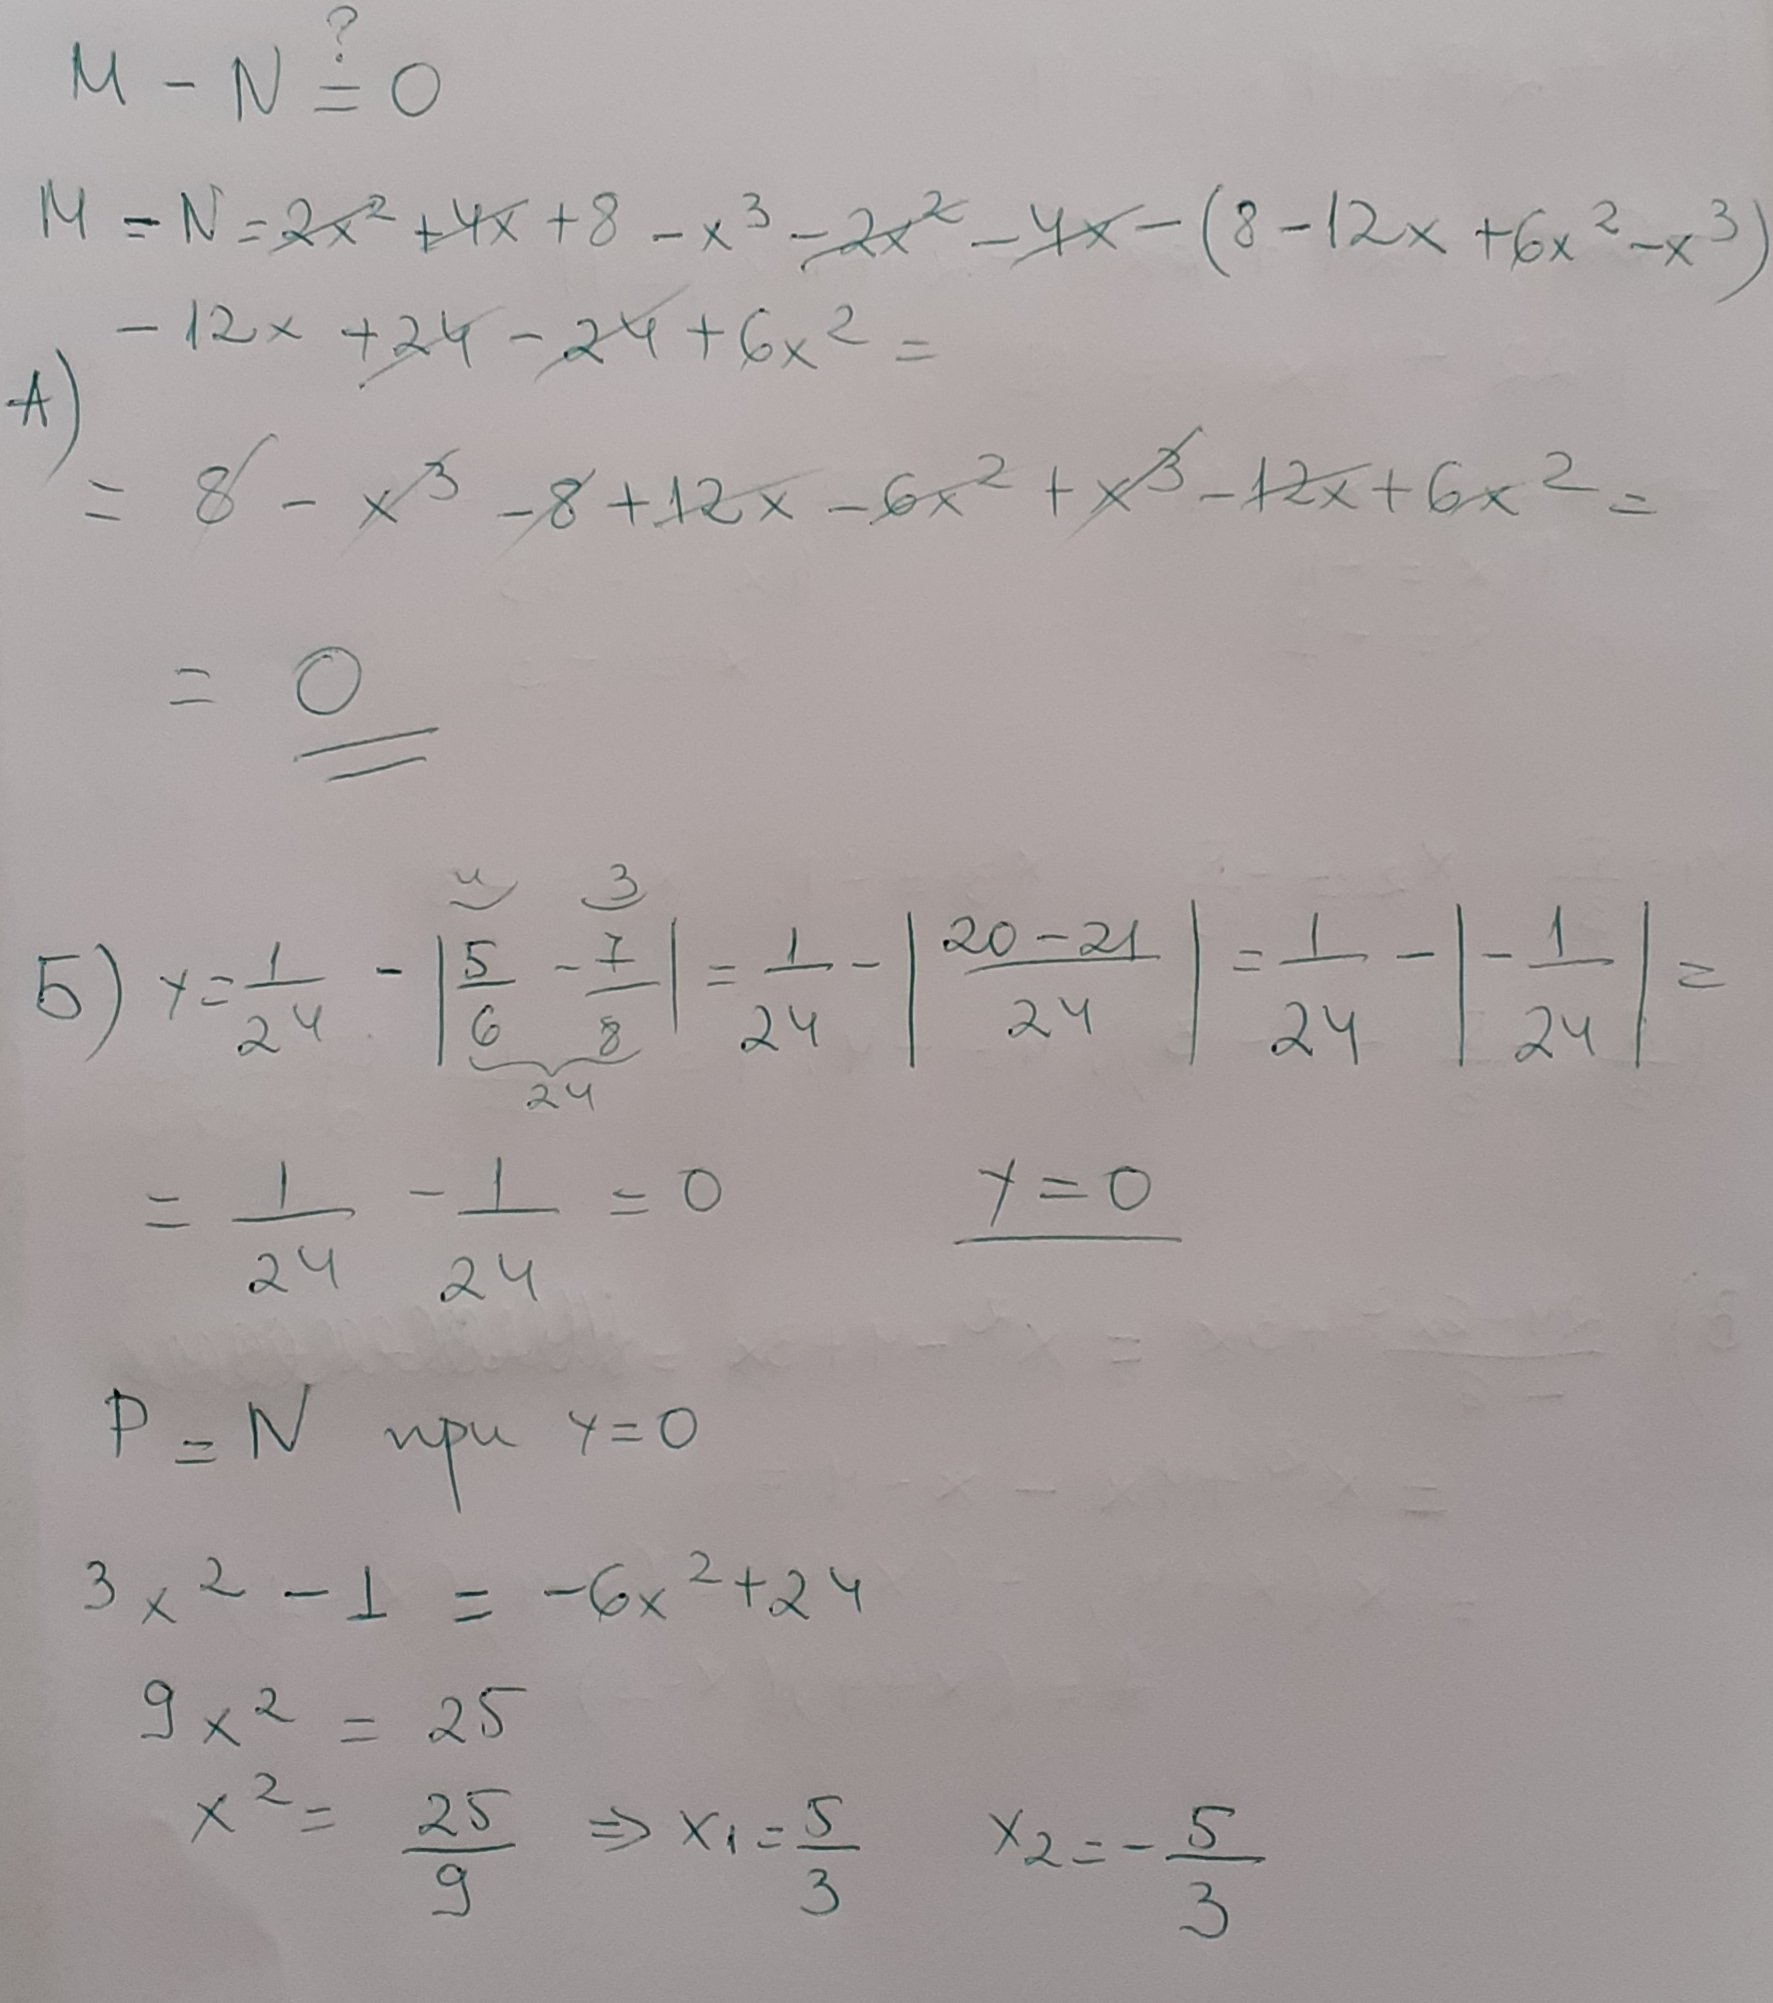 M - N ?= 0
M - N = 2x² + 4x + 8 - x³ - 2x² - 4x - (8 - 12x + 6x² - x³)
- 12x + 24 - 24 + 6x² =
A)
= 8 - x³ - 8 + 12x - 6x² + x³ - 12x + 6x² =
= 0
4 3
Б) y = 1/24 - |5/6 - 7/8| = 1/24 - |(20 - 21)/24| = 1/24 - |-1/24| =
24
= 1/24 - 1/24 = 0 y = 0
P = N при y = 0
3x² - 1 = -6x² + 24
9x² = 25
x² = 25/9 ⇒ x₁ = 5/3 x₂ = -5/3